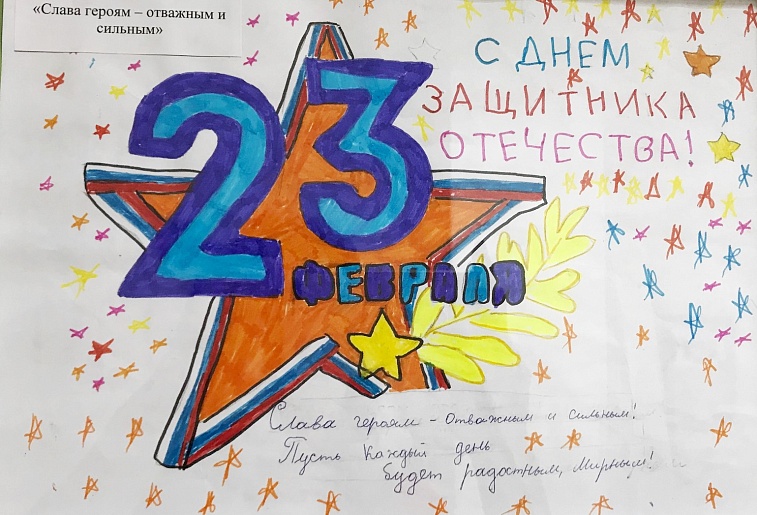 «Слава героям – отважным и
сильным»
23
ФЕВРАЛЯ
С ДНЕМ
ЗАЩИТНИКА
ОТЕЧЕСТВА!
Слава героям - отважным и сильным!
Пусть каждый день
будет радостным, мирным!